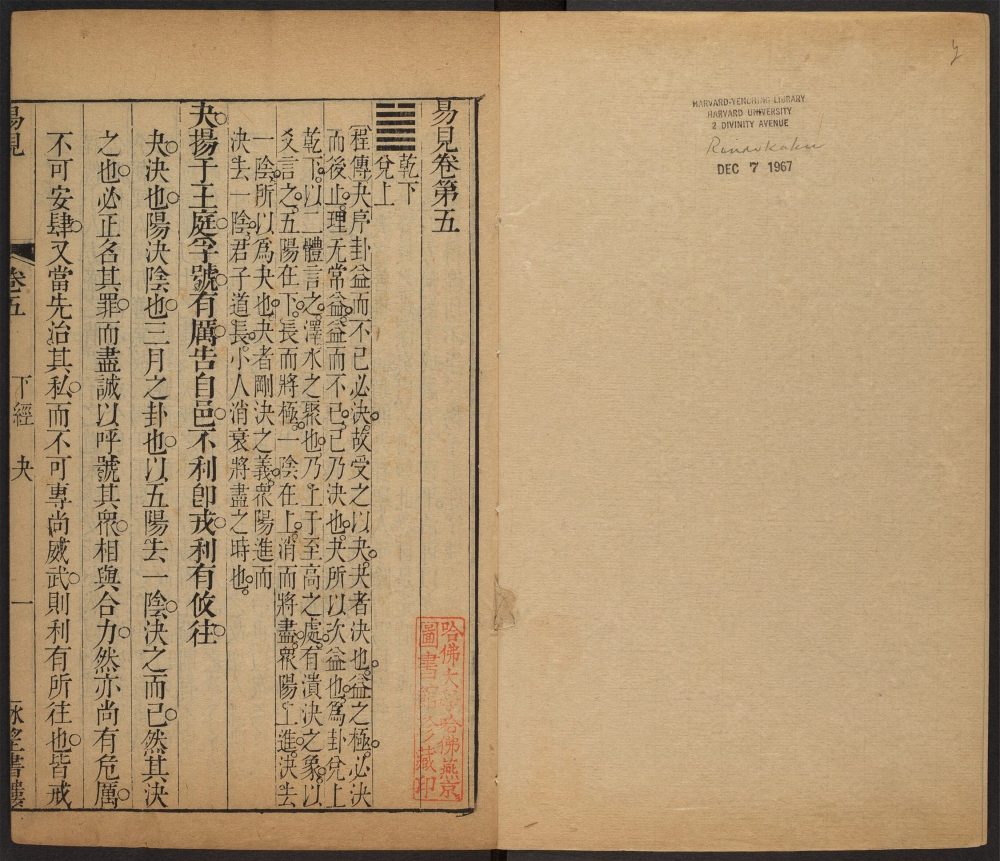 HARVARD-YENCHING LIBRARY
HARVARD UNIVERSITY
2 DIVINITY AVENUE
DEC 7 1967
易見卷第五
哈佛大學哈佛燕京
圖書館珍藏印
乾下
兌上
程傳夬序卦益而不已必決。故受之以夬。夬者決也。益之極。必決
而後止。理无常益。益而不已。已乃決也。夬所以次益也。爲卦兌上
乾下。以二體言之。澤水之聚也。乃上于至高之處。有潰決之象。以
爻言之。五陽在下。長而將極。一陰在上。消而將盡。眾陽上進。決去
一陰。所以爲夬也。夬者剛決之義。眾陽進而
決去一陰。君子道長。小人消衰將盡之時也。
夬。揚于王庭。孚號。有厲。告自邑。不利卽戎。利有攸往。
夬。決也。陽決陰也。三月之卦也。以五陽去一陰。決之而已。然其決
之也。必正名其罪。而盡誠以呼號其眾。相與合力。然亦尚有危厲。
不可安肆。又當先治其私。而不可專尚威武。則利有所往也。皆戒
易見
卷五
下經
夬
一
脈望書樓